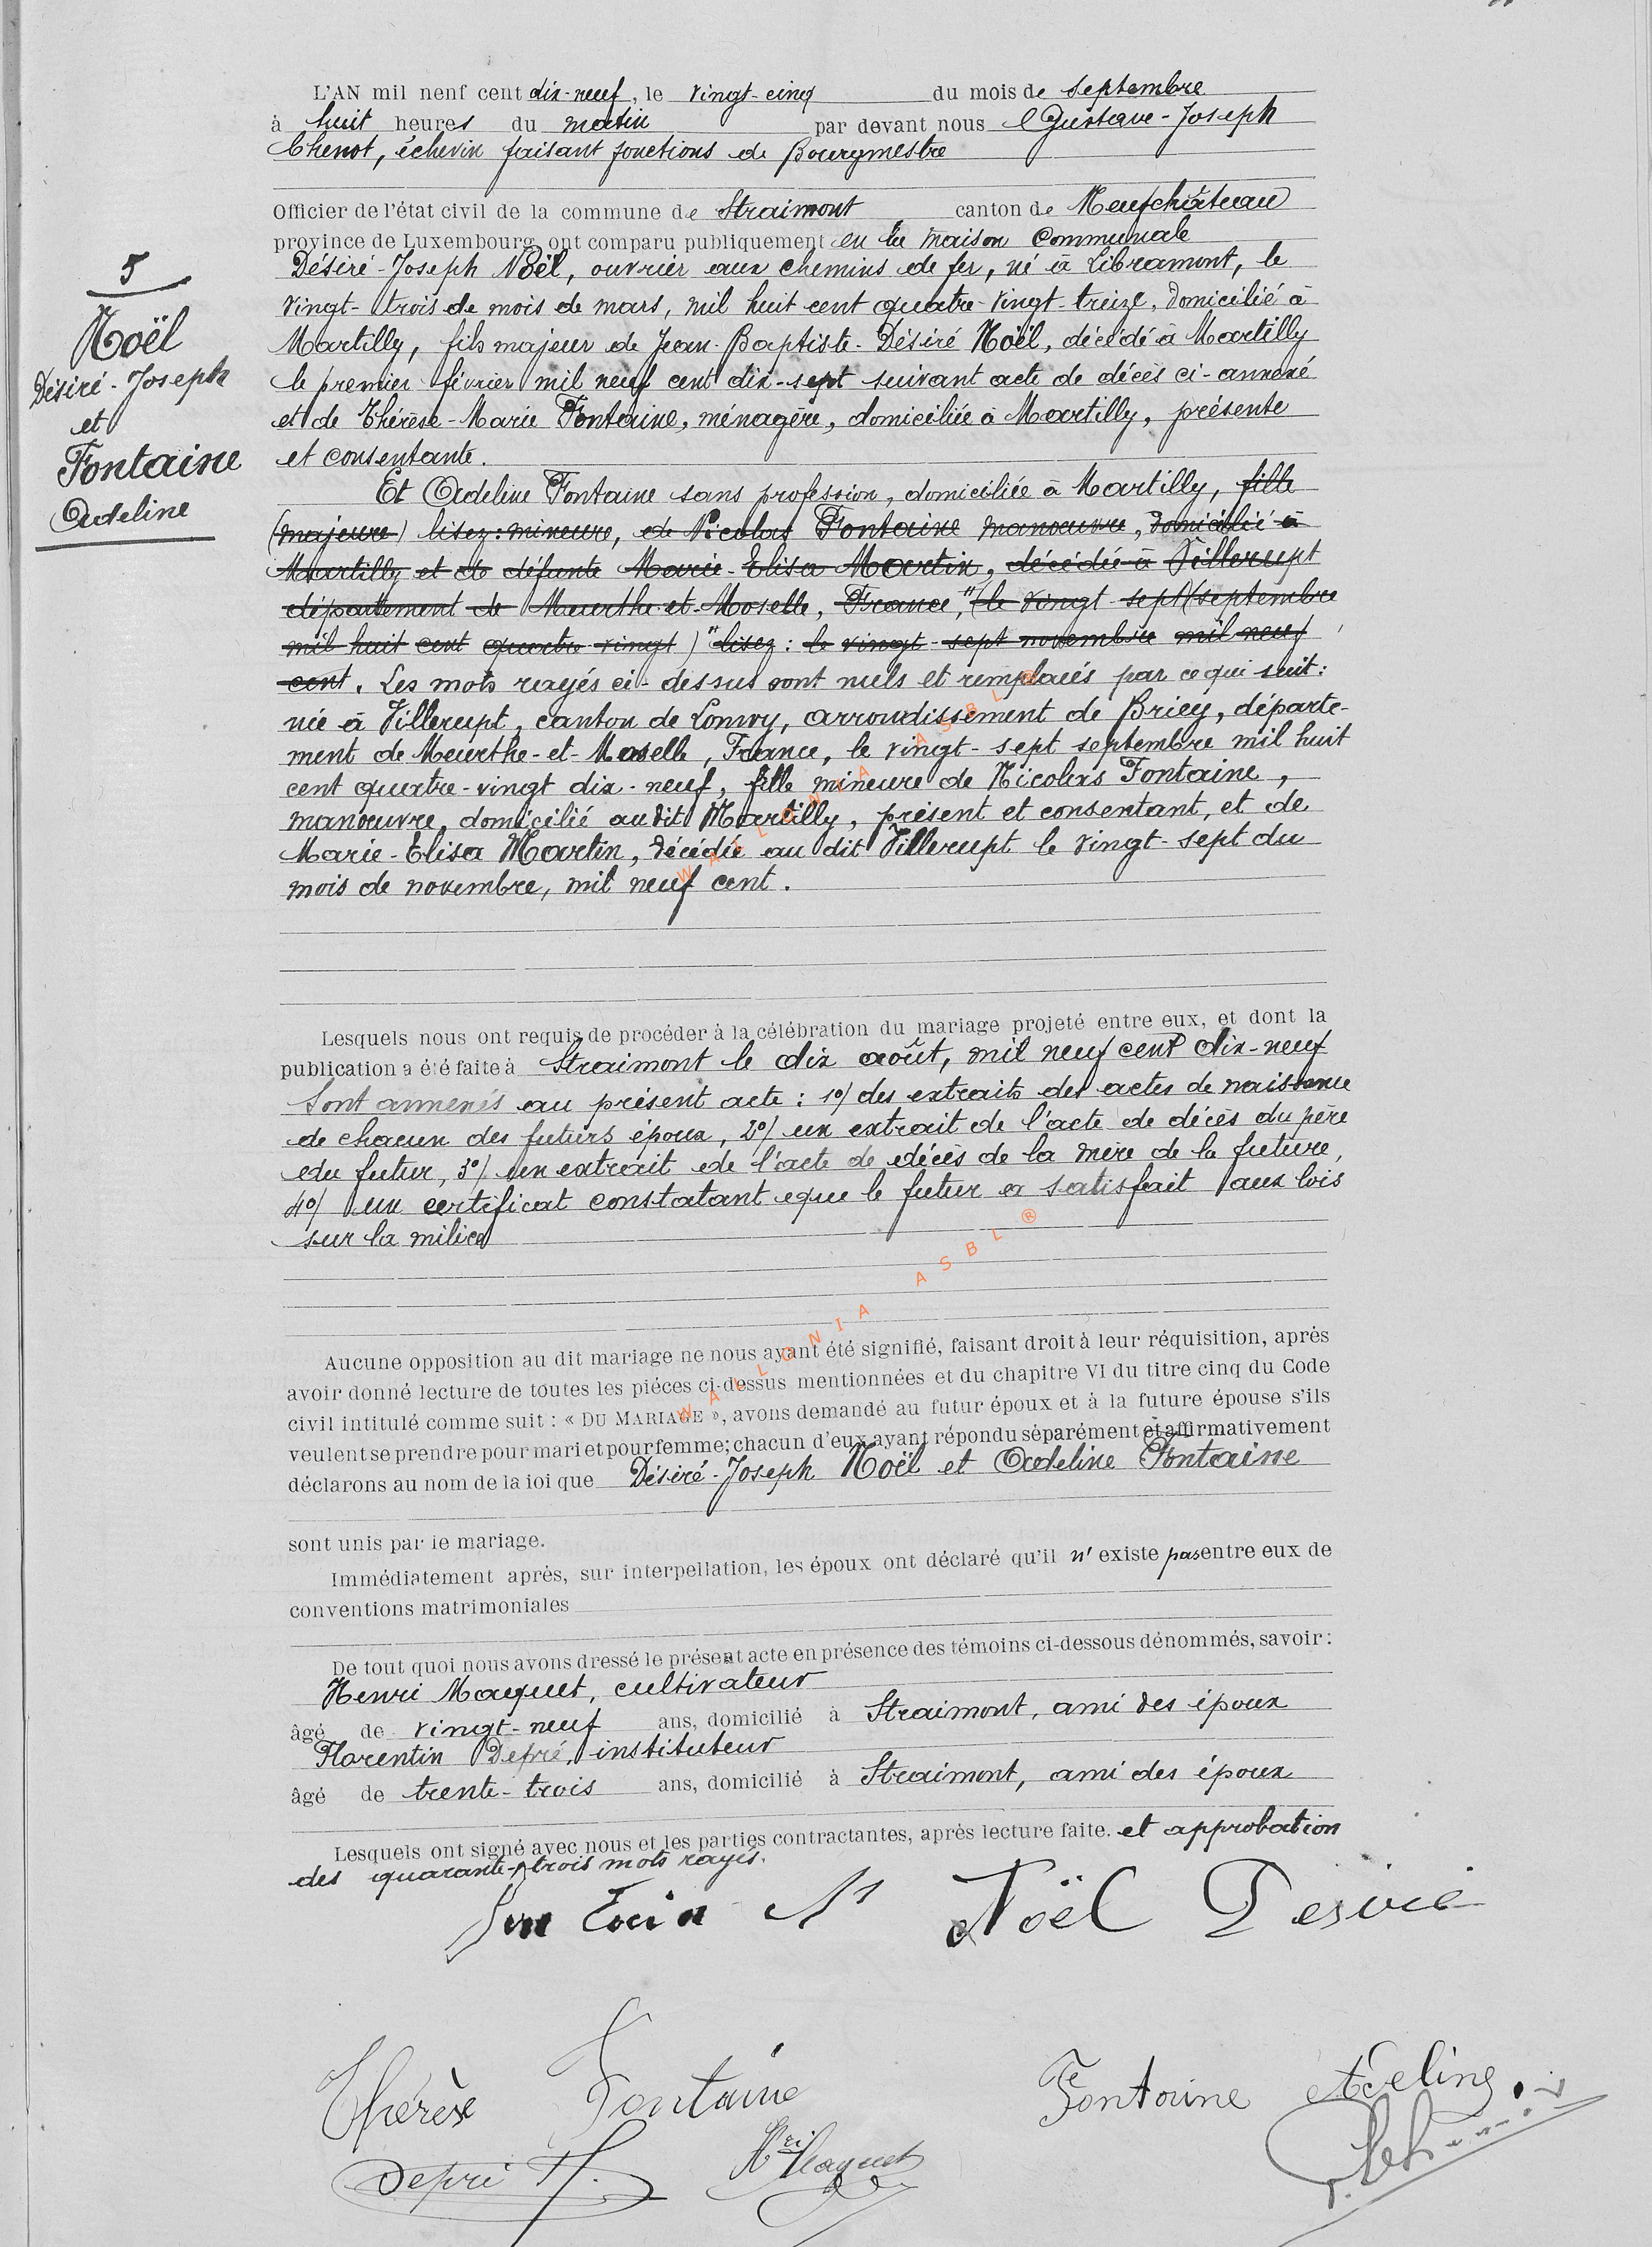 L'AN mil neuf cent dix-neuf, le vingt-cinq du mois de septembre
à huit heures du matin par devant nous Gustave-Joseph
Chenot, échevin faisant fonctions de Bourgmestre
Officier de l'état civil de la commune de Straimont canton de Neufchâteau
province de Luxembourg ont comparu publiquement en la maison Communale
5
Noël
Désiré-Joseph
et
Fontaine
Adeline
Désiré-Joseph Noël, ouvrier aux chemins de fer, né à Libramont, le
vingt-trois de mois de mars, mil huit cent quatre-vingt-treize, domicilié à
Martilly, fils majeur de Jean-Baptiste-Désiré Noël, décédé à Martilly
le premier février mil neuf cent dix-sept suivant acte de décès ci-annexé
et de Thérèse-Marie Fontaine, ménagère, domiciliée à Martilly, présente
et consentante.
Et Adeline Fontaine sans profession, domiciliée à Martilly, fille
(majeure) lisez: mineure, de Nicolas Fontaine manœuvre, domicilié à
Martilly et de défunte Marie-Elisa Martin, décédée à Villerupt
département de Meurthe-et-Moselle, France," (le vingt-sept septembre
mil huit cent quatre vingt)" lisez: le vingt-sept novembre mil neuf
cent. Les mots rayés ci-dessus sont nuls et remplacés par ce qui suit:
née à Villerupt, canton de Lonwy, arrondissement de Briey, départe-
ment de Meurthe-et-Moselle, France, le vingt-sept septembre mil huit
cent quatre-vingt dix-neuf, fille mineure de Nicolas Fontaine,
manœuvre, domicilié audit Martilly, présent et consentant, et de
Marie-Elisa Martin, décédée au dit Villerupt le vingt-sept du
mois de novembre, mil neuf cent.
WALLONIA ASBL ®
Lesquels nous ont requis de procéder à la célébration du mariage projeté entre eux, et dont la
publication a été faite à Straimont le dix août, mil neuf cent dix-neuf
Sont annexés au présent acte: 1°/ des extraits des actes de naissance
de chacun des futurs époux, 2°/ un extrait de l'acte de décès du père
du futur, 3°/ un extrait de l'acte de décès de la mère de la future,
4°/ un certificat constatant que le futur a satisfait aux lois
sur la milice
WALLONIA ASBL ®
Aucune opposition au dit mariage ne nous ayant été signifié, faisant droit à leur réquisition, après
avoir donné lecture de toutes les pièces ci-dessus mentionnées et du chapitre VI du titre cinq du Code
civil intitulé comme suit : « DU MARIAGE », avons demandé au futur époux et à la future épouse s'ils
veulent se prendre pour mari et pour femme; chacun d'eux ayant répondu séparément et affirmativement
déclarons au nom de la loi que Désiré-Joseph Noël et Adeline Fontaine
sont unis par le mariage.
Immédiatement après, sur interpellation, les époux ont déclaré qu'il n'existe pas entre eux de
conventions matrimoniales
De tout quoi nous avons dressé le présent acte en présence des témoins ci-dessous dénommés, savoir :
Henri Maquet, cultivateur
âgé de vingt-neuf ans, domicilié à Straimont, ami des époux
Florentin Depré, instituteur
âgé de trente-trois ans, domicilié à Straimont, ami des époux
Lesquels ont signé avec nous et les parties contractantes, après lecture faite. et approbation
des quarante-trois mots rayés.
Noël Desiré
Thérèse Fontaine
Fontaine Adeline
Depré Fl.
Hri Maquet